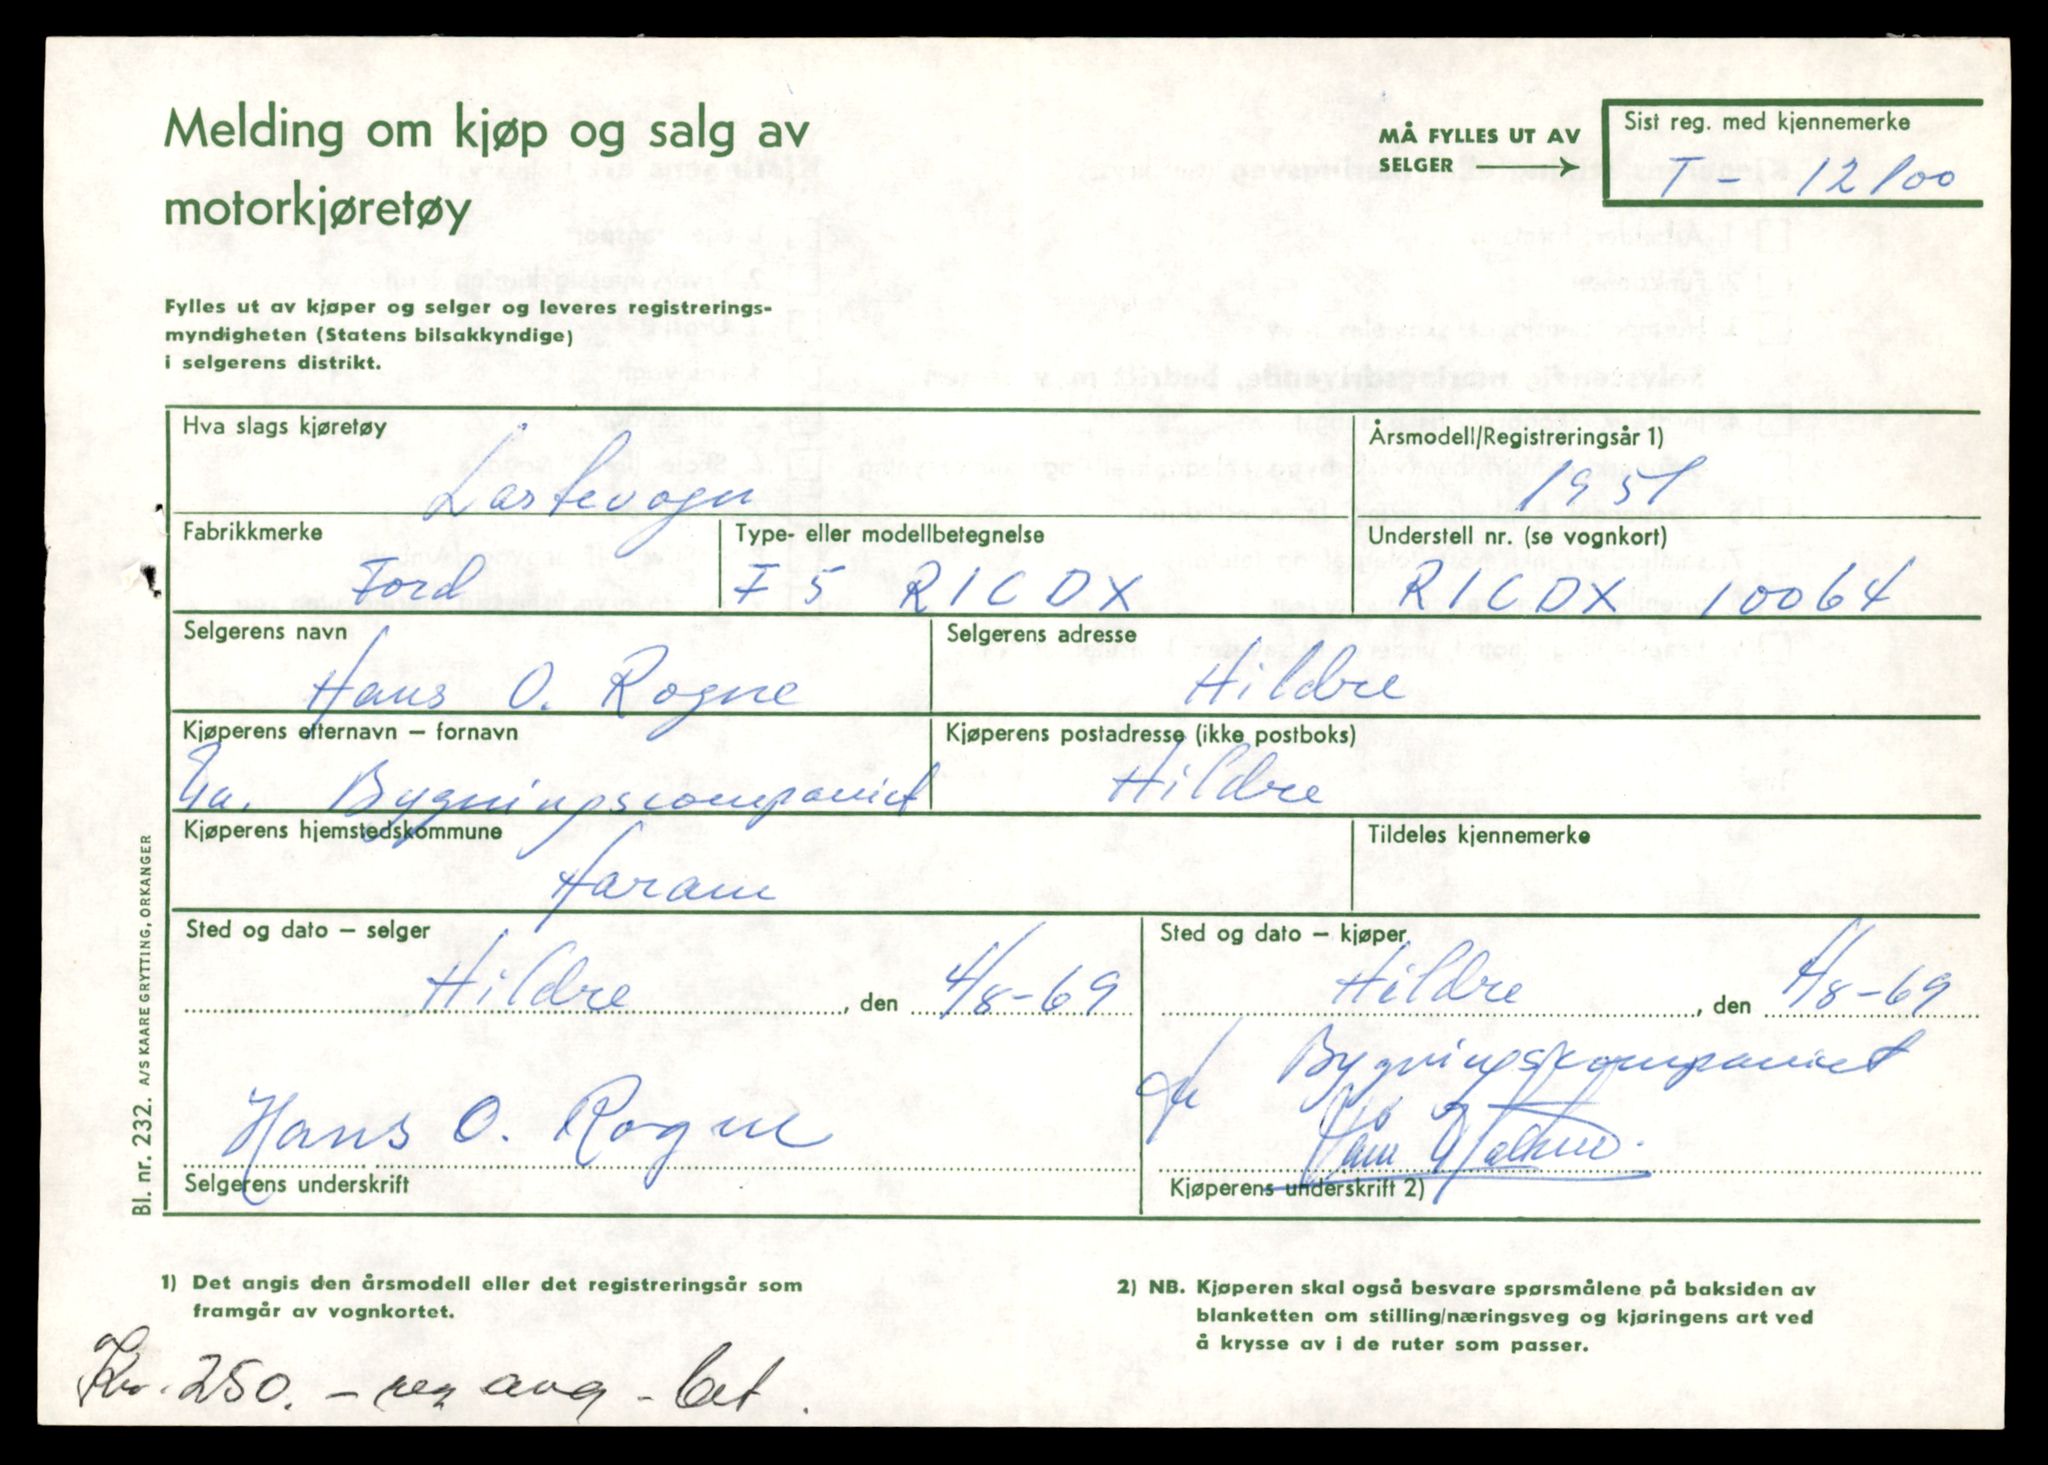 Melding om kjøp og salg av
motorkjøretøy
MÅ FYLLES UT AV
SELGER
Sist reg. med kjennemerke
T - 12100
Fylles ut av kjøper og selger og leveres registrerings-
myndigheten (Statens bilsakkyndige)
i selgerens distrikt.
Hva slags kjøretøy
Lastevogn
Årsmodell/Registreringsår 1)
1951
Fabrikkmerke
Ford
Type- eller modellbetegnelse
F 5 R1CDX
Understell nr. (se vognkort)
R1CDX 10064
Selgerens navn
Hans O. Rogne
Selgerens adresse
Hildre
Kjøperens efternavn – fornavn
Bygningscompaniet
Kjøperens postadresse (ikke postboks)
Hildre
Kjøperens hjemstedskommune
Haram
Tildeles kjennemerke
Sted og dato – selger
Hildre, den 4/8-69
Sted og dato – kjøper
Hildre, den 4/8-69
Bygningskompaniet
Hans O. Rogne
Selgerens underskrift
Kjøperens underskrift 2)
Bl. nr. 232. A/S KAARE GRYTTING, ORKANGER
1) Det angis den årsmodell eller det registreringsår som
framgår av vognkortet.
2) NB. Kjøperen skal også besvare spørsmålene på baksiden av
blanketten om stilling/næringsveg og kjøringens art ved
å krysse av i de ruter som passer.
Kr. 250. - reg avg - bet.